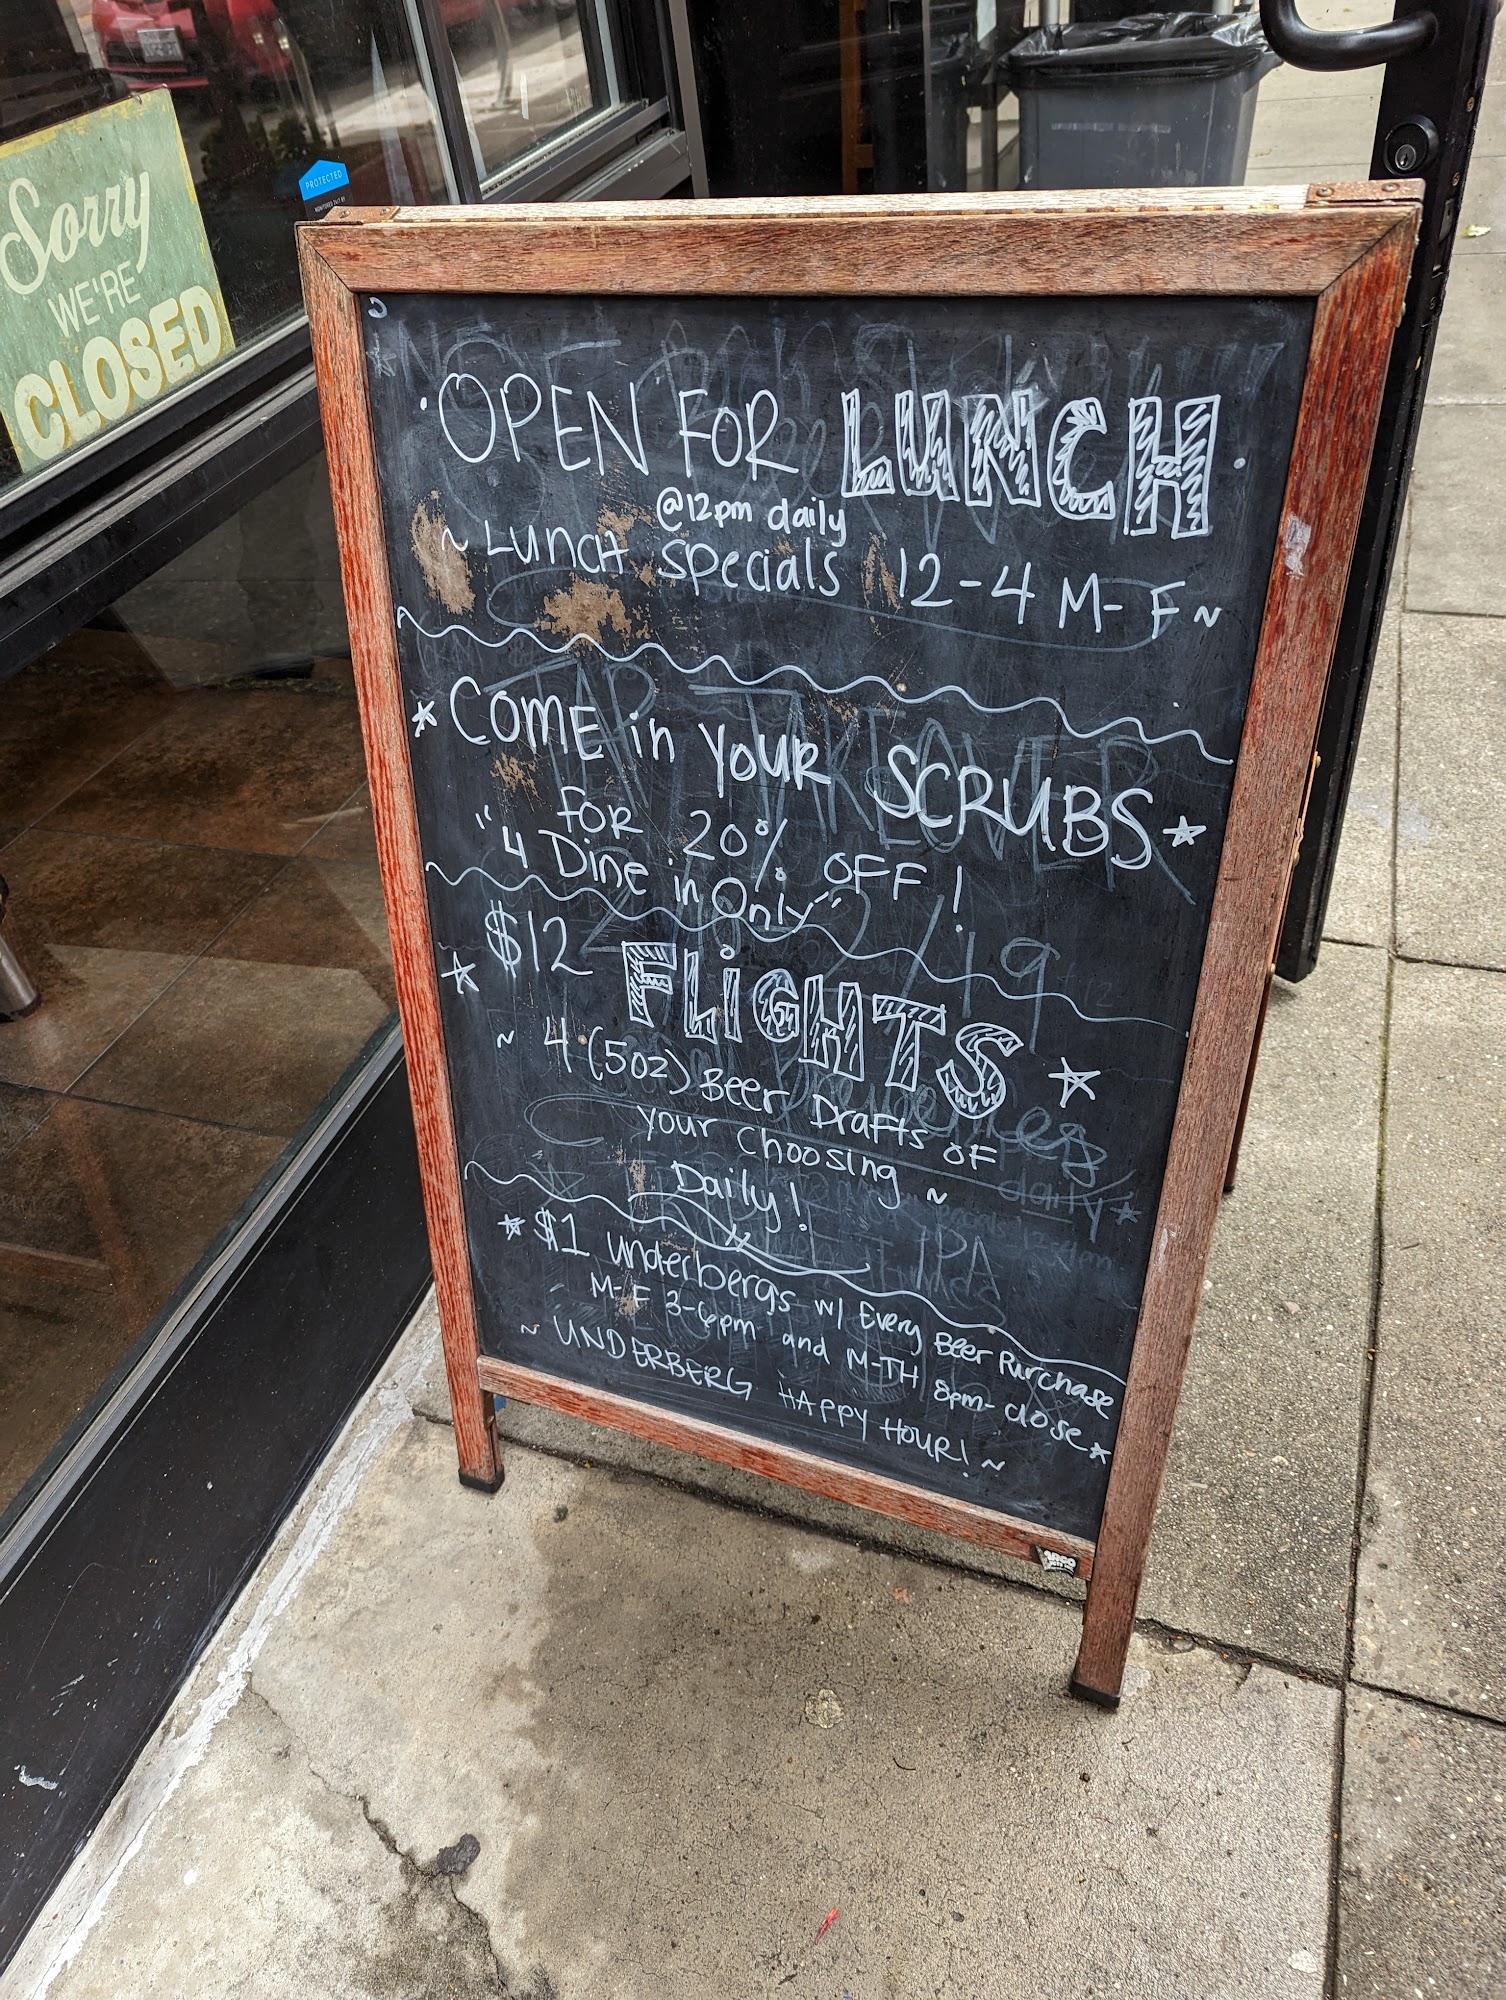 Sorry
WE'RE
CLOSED
PROTECTED
MONITORED 24/7 BY
OPEN FOR LUNCH
@12pm daily
~ Lunch Specials 12-4 M-F ~
COME in YOUR SCRUBS
FOR 20% OFF!
"4 Dine in Only"
$12 FLiGHTS
~ 4 (5oz) Beer Drafts of
your choosing ~
Daily!
$1 underbergs w/ Every Beer Purchase
M-F 3-6pm and M-TH 8pm-close
~ UNDERBERG HAPPY HOUR! ~